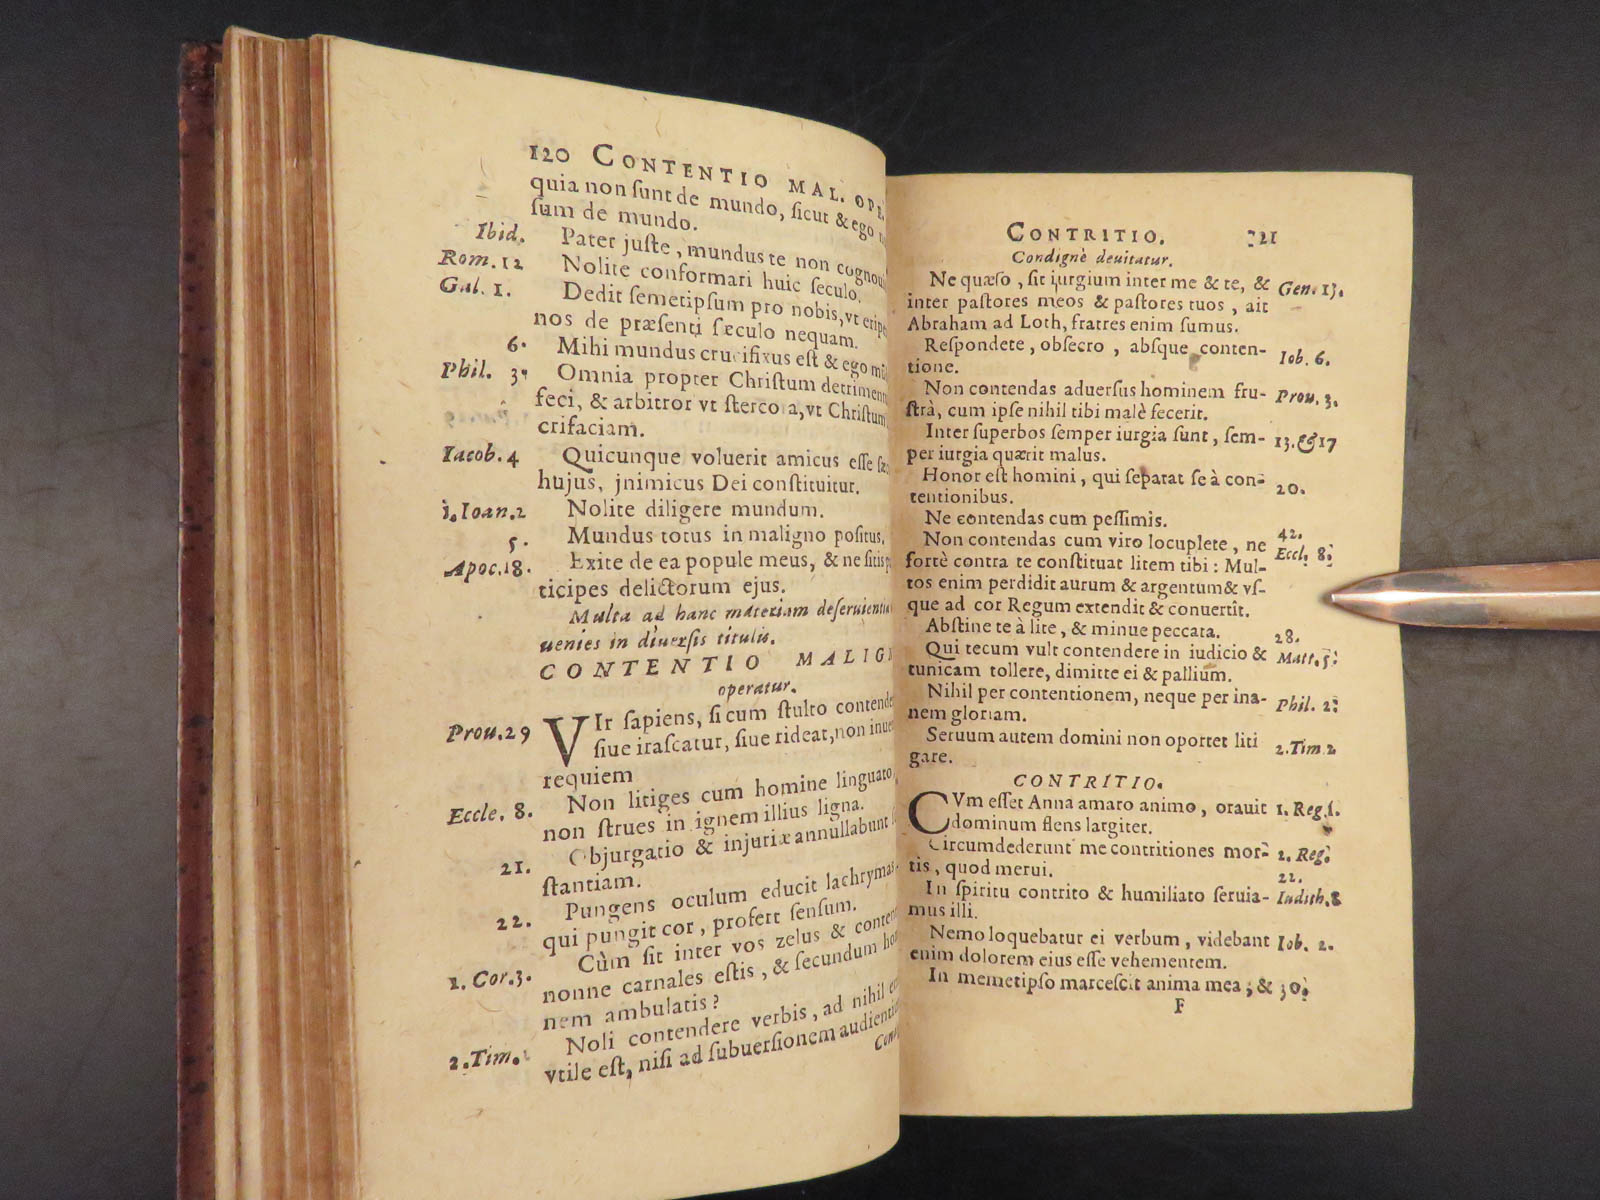 120 CONTENTIO MAL. OPE
quia non ſunt de mundo, ſicut & ego
ſum de mundo.
Ibid. Pater juſte, mundus te non
Rom. 12 Nolite conformari huic ſeculo.
Gal. 1. Dedit ſemetipſum pro nobis, vt
nos de præſenti ſæculo nequam.
6. Mihi mundus crucifixus eſt & ego
Phil. 3. Omnia propter Chriſtum
feci, & arbitror vt ſtercora, vt Chriſtum
crifaciam.
Iacob. 4 Quicunque voluerit amicus eſſe
hujus, jnimicus Dei conſtituitur.
1. Ioan. 2 Nolite diligere mundum.
5. Mundus totus in maligno poſitus.
Apoc. 18. Exite de ea popule meus, & ne ſitis
ticipes delictorum ejus.
Multa ad hanc materiam
uenies in diuerſis titulis.
CONTENTIO
operatur.
Prou. 29 VIr ſapiens, ſi cum ſtulto
ſiue iraſcatur, ſiue rideat, non
requiem
Eccle. 8. Non litiges cum homine linguato,
non ſtrues in ignem illius ligna.
21. Objurgatio & injuriæ annullabunt
ſtantiam.
22. Pungens oculum educit lachrymas,
qui pungit cor, profert ſenſum.
1. Cor. 3. Cùm ſit inter vos zelus &
nonne carnales eſtis, & ſecundum
nem ambulatis?
2. Tim. Noli contendere verbis, ad nihil
vtile eſt, niſi ad ſubuerſionem
CONTRITIO. 121
Condignè deuitatur.
Ne quæſo, ſit iurgium inter me & te, & Gen. 13.
inter paſtores meos & paſtores tuos, ait
Abraham ad Loth, fratres enim ſumus.
Reſpondete, obſecro, abſque conten- Iob. 6.
tione.
Non contendas aduerſus hominem fru- Prou. 3.
ſtrà, cum ipſe nihil tibi malè fecerit.
Inter ſuperbos ſemper iurgia ſunt, ſem- 13. & 17
per iurgia quærit malus.
Honor eſt homini, qui ſeparat ſe à con- 20.
tentionibus.
Ne contendas cum peſſimis. 42.
Non contendas cum viro locuplete, ne Eccl. 8.
fortè contra te conſtituat litem tibi: Mul-
tos enim perdidit aurum & argentum & vſ-
que ad cor Regum extendit & conuertit.
Abſtine te à lite, & minue peccata. 28.
Qui tecum vult contendere in iudicio & Matt. 5.
tunicam tollere, dimitte ei & pallium.
Nihil per contentionem, neque per ina- Phil. 2.
nem gloriam.
Seruum autem domini non oportet liti 2. Tim. 2
gare.
CONTRITIO.
CVm eſſet Anna amaro animo, orauit 1. Reg. 1.
dominum flens largiter.
Circumdederunt me contritiones mor- 2. Reg.
tis, quod merui. 22.
In ſpiritu contrito & humiliato ſeruia- Iudith. 8
mus illi.
Nemo loquebatur ei verbum, videbant Iob. 2.
enim dolorem eius eſſe vehementem.
In memetipſo marceſcit anima mea; & 30.
F